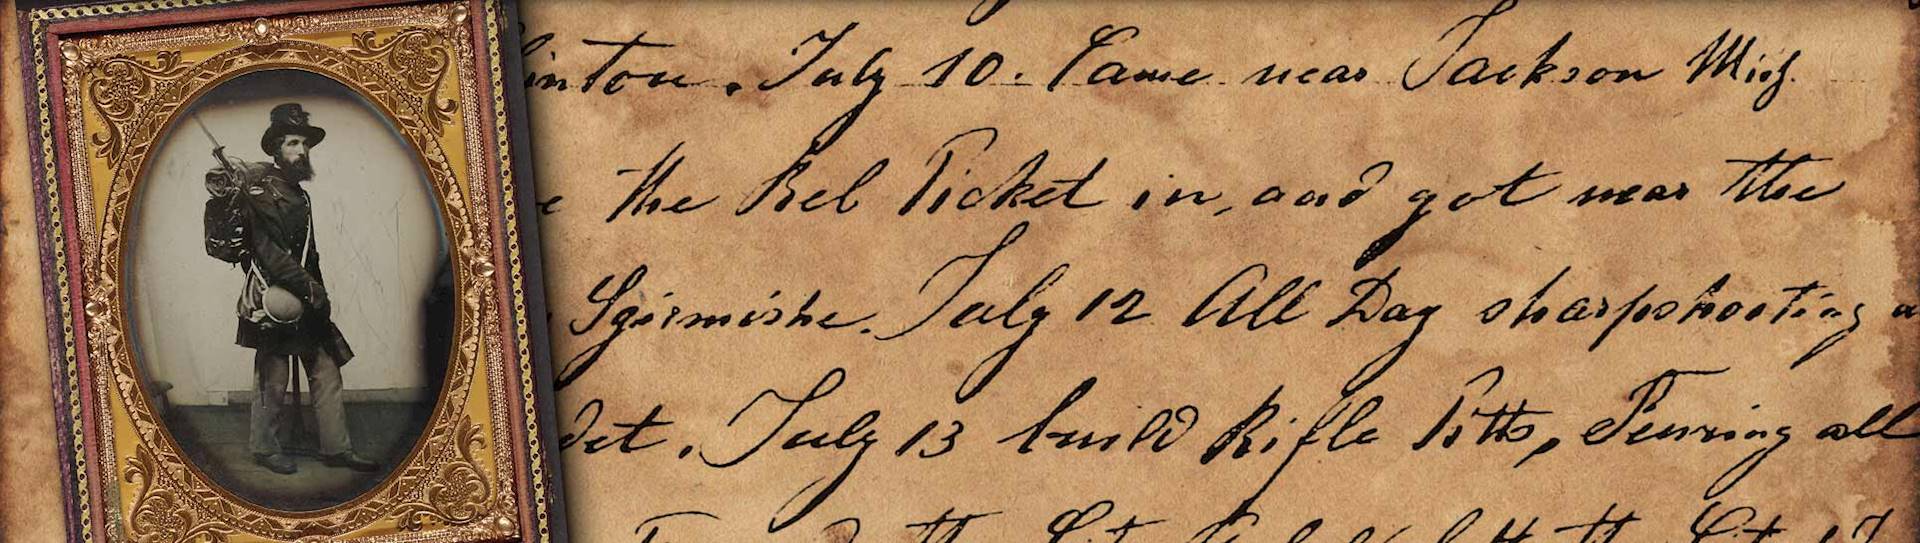 inton. July 10. Came near Jackson Miss.
e the Rel Picket in, and got near the
Sgirmishe. July 12 All Day sharpshooting a
det. July 13 build Rifle Pitts, Fenring all